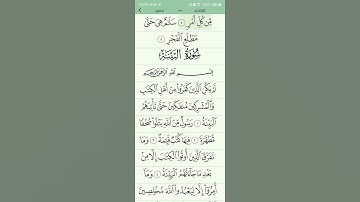 مِّن كُلِّ أَمْرٍ ٤ سَلَٰمٌ هِيَ حَتَّىٰ
مَطْلَعِ ٱلْفَجْرِ ٥
سُورَةُ البَيِّنَةِ
بِسْمِ ٱللَّهِ ٱلرَّحْمَٰنِ ٱلرَّحِيمِ
لَمْ يَكُنِ ٱلَّذِينَ كَفَرُوا۟ مِنْ أَهْلِ ٱلْكِتَٰبِ
وَٱلْمُشْرِكِينَ مُنفَكِّينَ حَتَّىٰ تَأْتِيَهُمُ
ٱلْبَيِّنَةُ ١ رَسُولٌ مِّنَ ٱللَّهِ يَتْلُوا۟ صُحُفًا
مُّطَهَّرَةً ٢ فِيهَا كُتُبٌ قَيِّمَةٌ ٣ وَمَا
تَفَرَّقَ ٱلَّذِينَ أُوتُوا۟ ٱلْكِتَٰبَ إِلَّا مِنۢ
بَعْدِ مَا جَآءَتْهُمُ ٱلْبَيِّنَةُ ٤ وَمَآ
أُمِرُوٓا۟ إِلَّا لِيَعْبُدُوا۟ ٱللَّهَ مُخْلِصِينَ